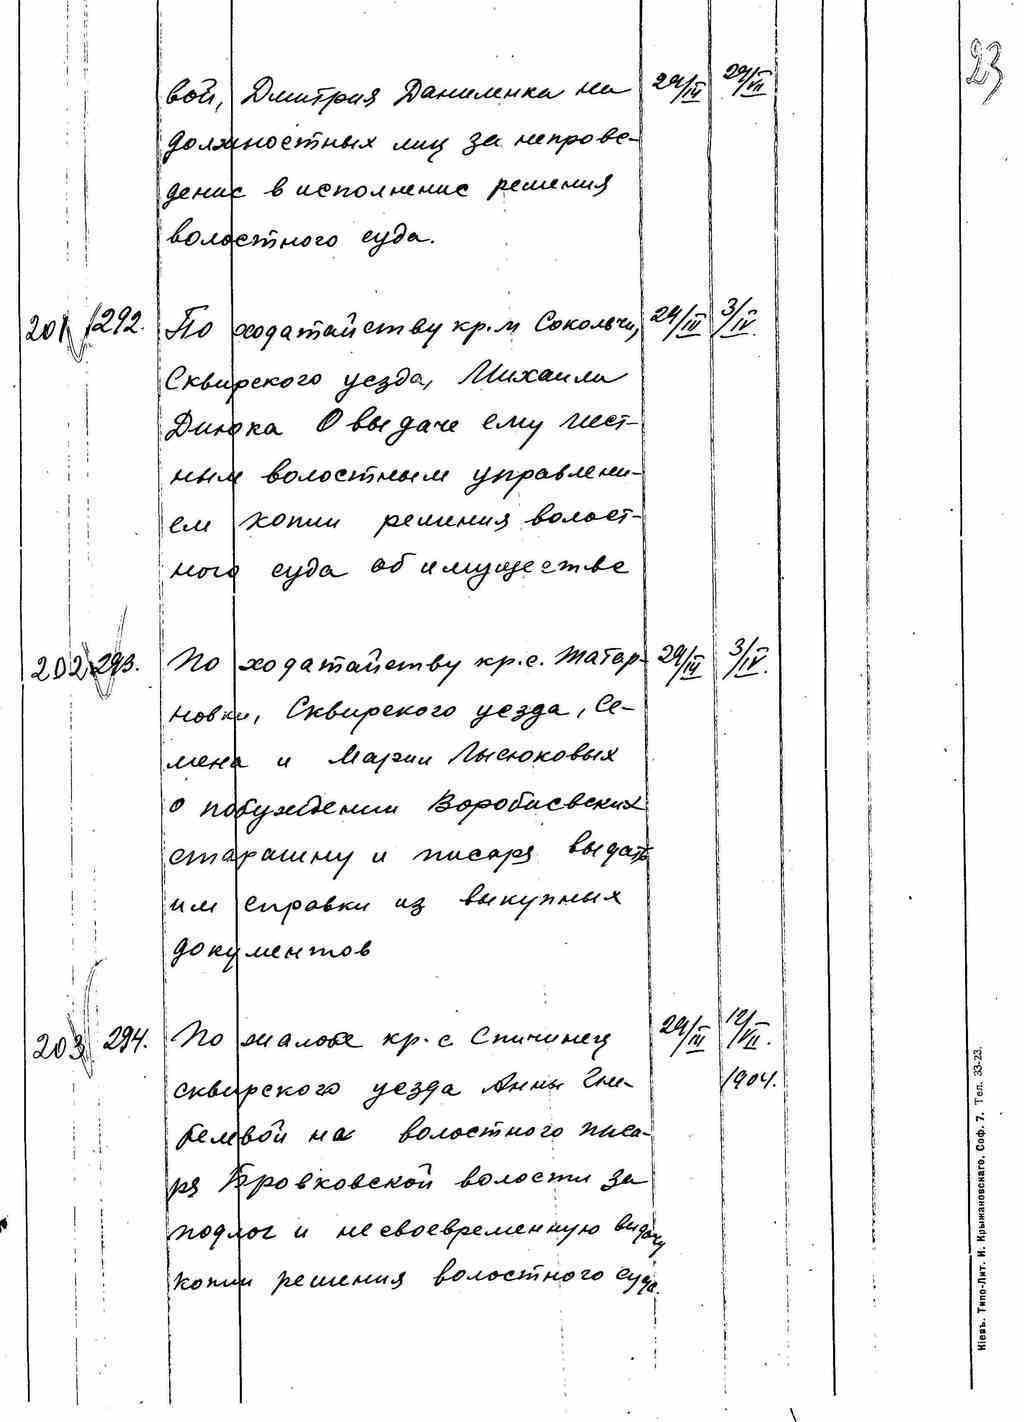 23
вой, Дмитрия Даниленка на 24/III 24/VII
должностных лиц за неприве-
дение в исполнение решения
волостного суда.
201 292. По ходатайству кр. м Сокольчи, 24/III 3/IV.
Сквирского уезда, Михаила
Дьюка О выдаче ему мест-
ным волостным управлени-
ем копии решения волост-
ного суда об имуществе
202 293. По ходатайству кр. с. Татар- 24/III 3/IV.
новки, Сквирского уезда, Се-
мена и Марии Лысюковых
о побуждении Воробиевских
старшину и писаря выдать
им справки из выкупных
документов
203 294. По жалобе кр. с Спичинец 24/III 12/VII.
сквирского уезда Анны Гни- 1904.
на волостного писа-
ря Бровковской волости за
подлог и не своевременную выдачу
копии решения волостного суда.
Кіевъ. Типо-Лит. И. Крыжановскаго, Соф. 7. Тел. 33-23.